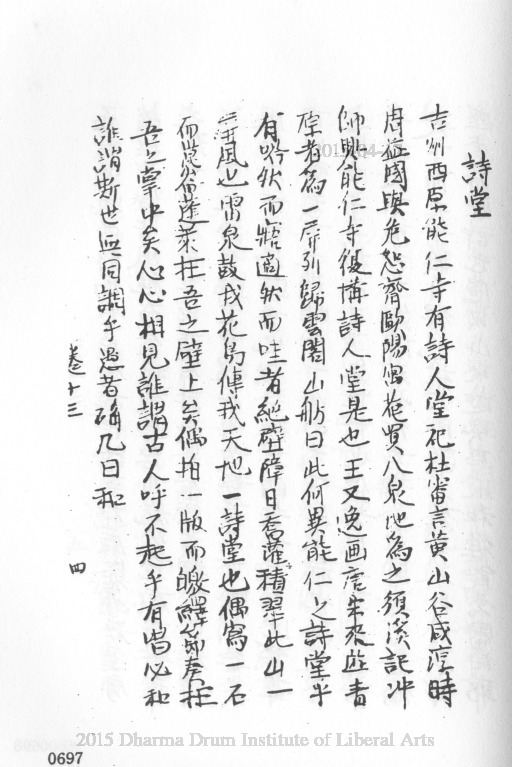 詩堂
吉州西原能仁寺有詩人堂祀杜審言黃山谷咸淳時
周益國與危恕齊歐陽巽菴買八泉地為之須溪記冲
師與能仁寺復搆詩人堂是也王又逸画唐宋來遊青
原者為一屏列歸雲閣山舫曰此何異能仁之詩堂乎
有吟然而寤適然而哇者絕壁障日喬蘿積翠此山一
屏風也雷泉鼓我花鳥傳我天地一詩堂也偶寫一石
而崑崙蓬萊在吾之壁上矣偶拍一版而皦繹節奏在
吾之掌中矣心心相見誰謂古人呼不起乎有唱必和
誰謂斯世無同調乎愚者确几曰和
卷十三
四
2015 Dharma Drum Institute of Liberal Arts
0697